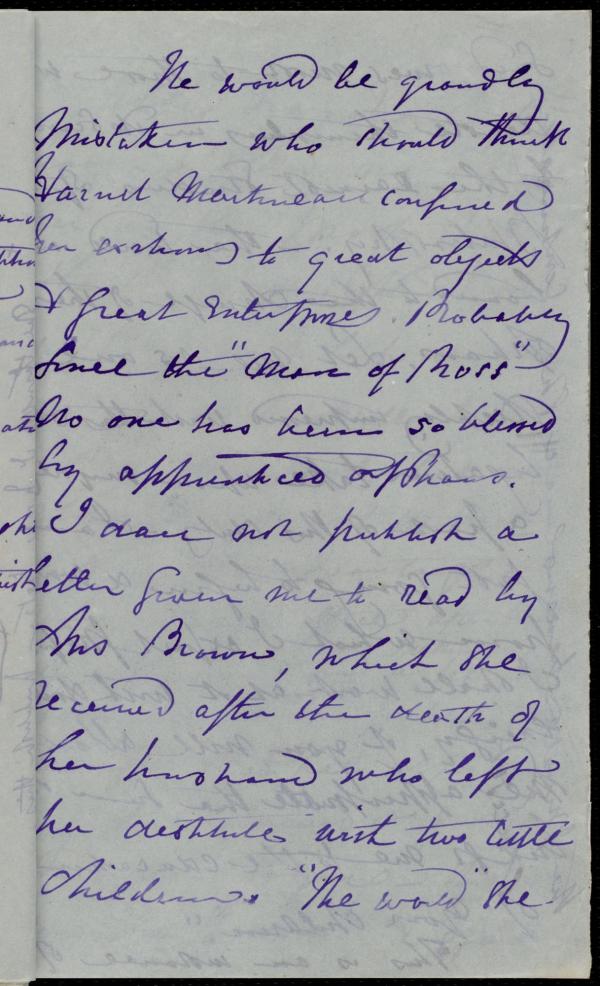 He would be grandly
mistaken who should think
Harriet Martineau confined
her exertions to great objects
& great enterprises. Probably
since the "Man of Ross"
no one has been so blessed
by apprenticed orphans.
I dare not publish a
letter given me to read by
Mrs Brown, which she
received after the death of
her husband who left
her destitute with two little
children. "He would" she